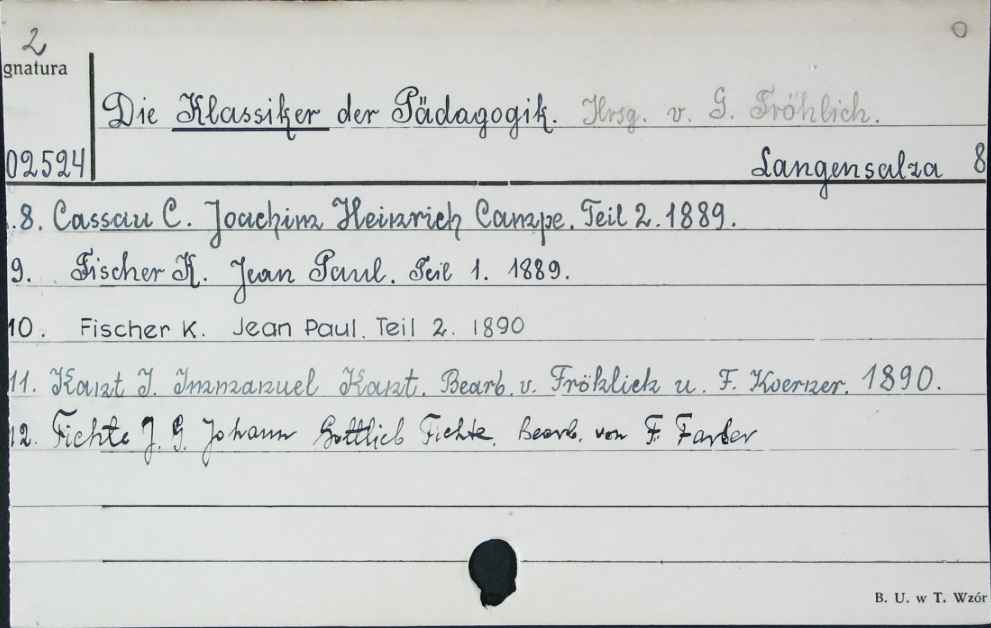 2
gnatura
Die Klassiker der Pädagogik. Hrsg. v. G. Fröhlich.
02524 Langensalza 8
.8. Cassau C. Joachim Heinrich Campe. Teil 2. 1889.
9. Fischer K. Jean Paul. Teil 1. 1889.
10. Fischer K. Jean Paul. Teil 2. 1890
11. Kant I. Immanuel Kant. Bearb. v. Fröhlich u. F. Koerner. 1890.
12. Fichte J. G. Johann Gottlieb Fichte. Bearb. von F. Farber
B. U. w T. Wzór